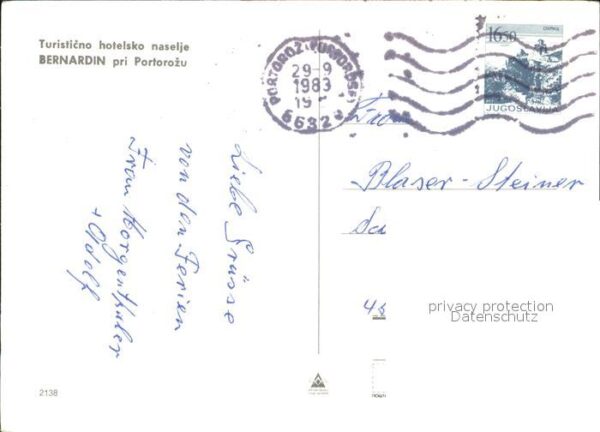 Turistično hotelsko naselje
BERNARDIN pri Portorožu
PORTOROŽ (PORTOROSE)
29-9
1983
19
66320
16.50
JUGOSLAVIJA
Liebe Grüsse
von den Ferien
Frau Morgenthaler
+ Adolf
Frau
Blaser-Steiner
48
privacy protection
Datenschutz
2138